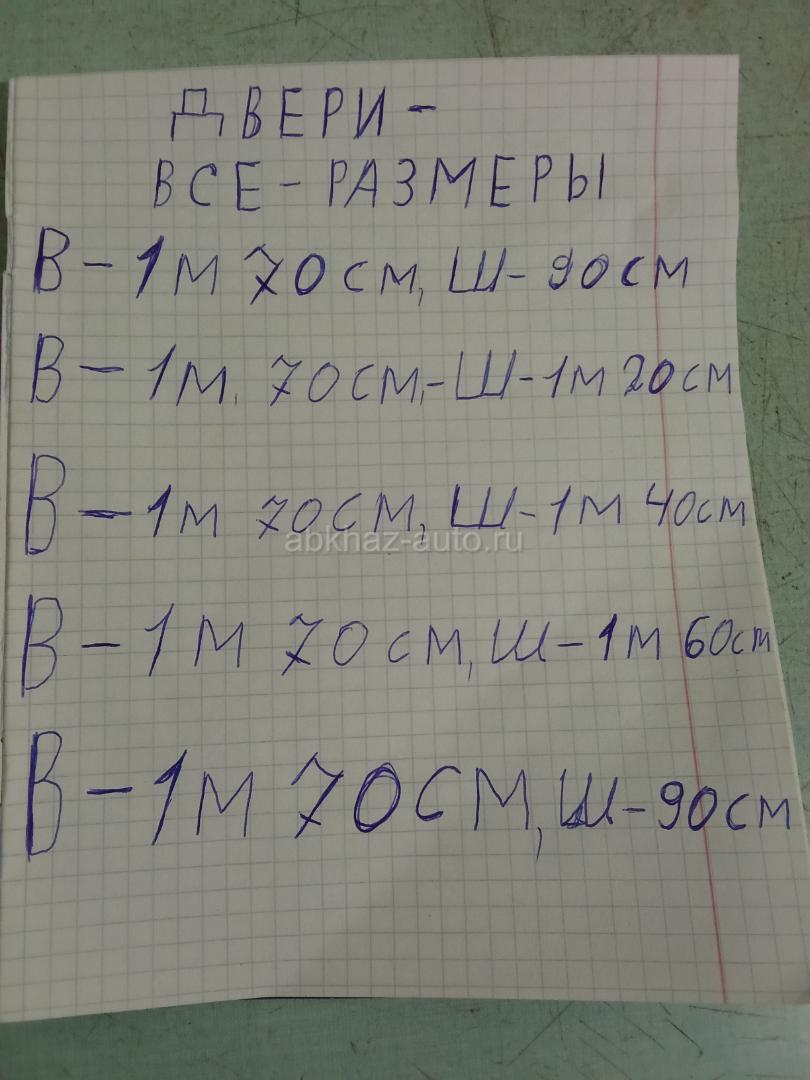 ДВЕРИ -
ВСЕ - РАЗМЕРЫ
В - 1м 70см, Ш- 90см
В - 1м. 70см,-Ш-1м 20см
В - 1м 70см, Ш-1м 40см
abkhaz-auto.ru
В - 1м 70см, Ш-1м 60см
В - 1м 70см, Ш-90см